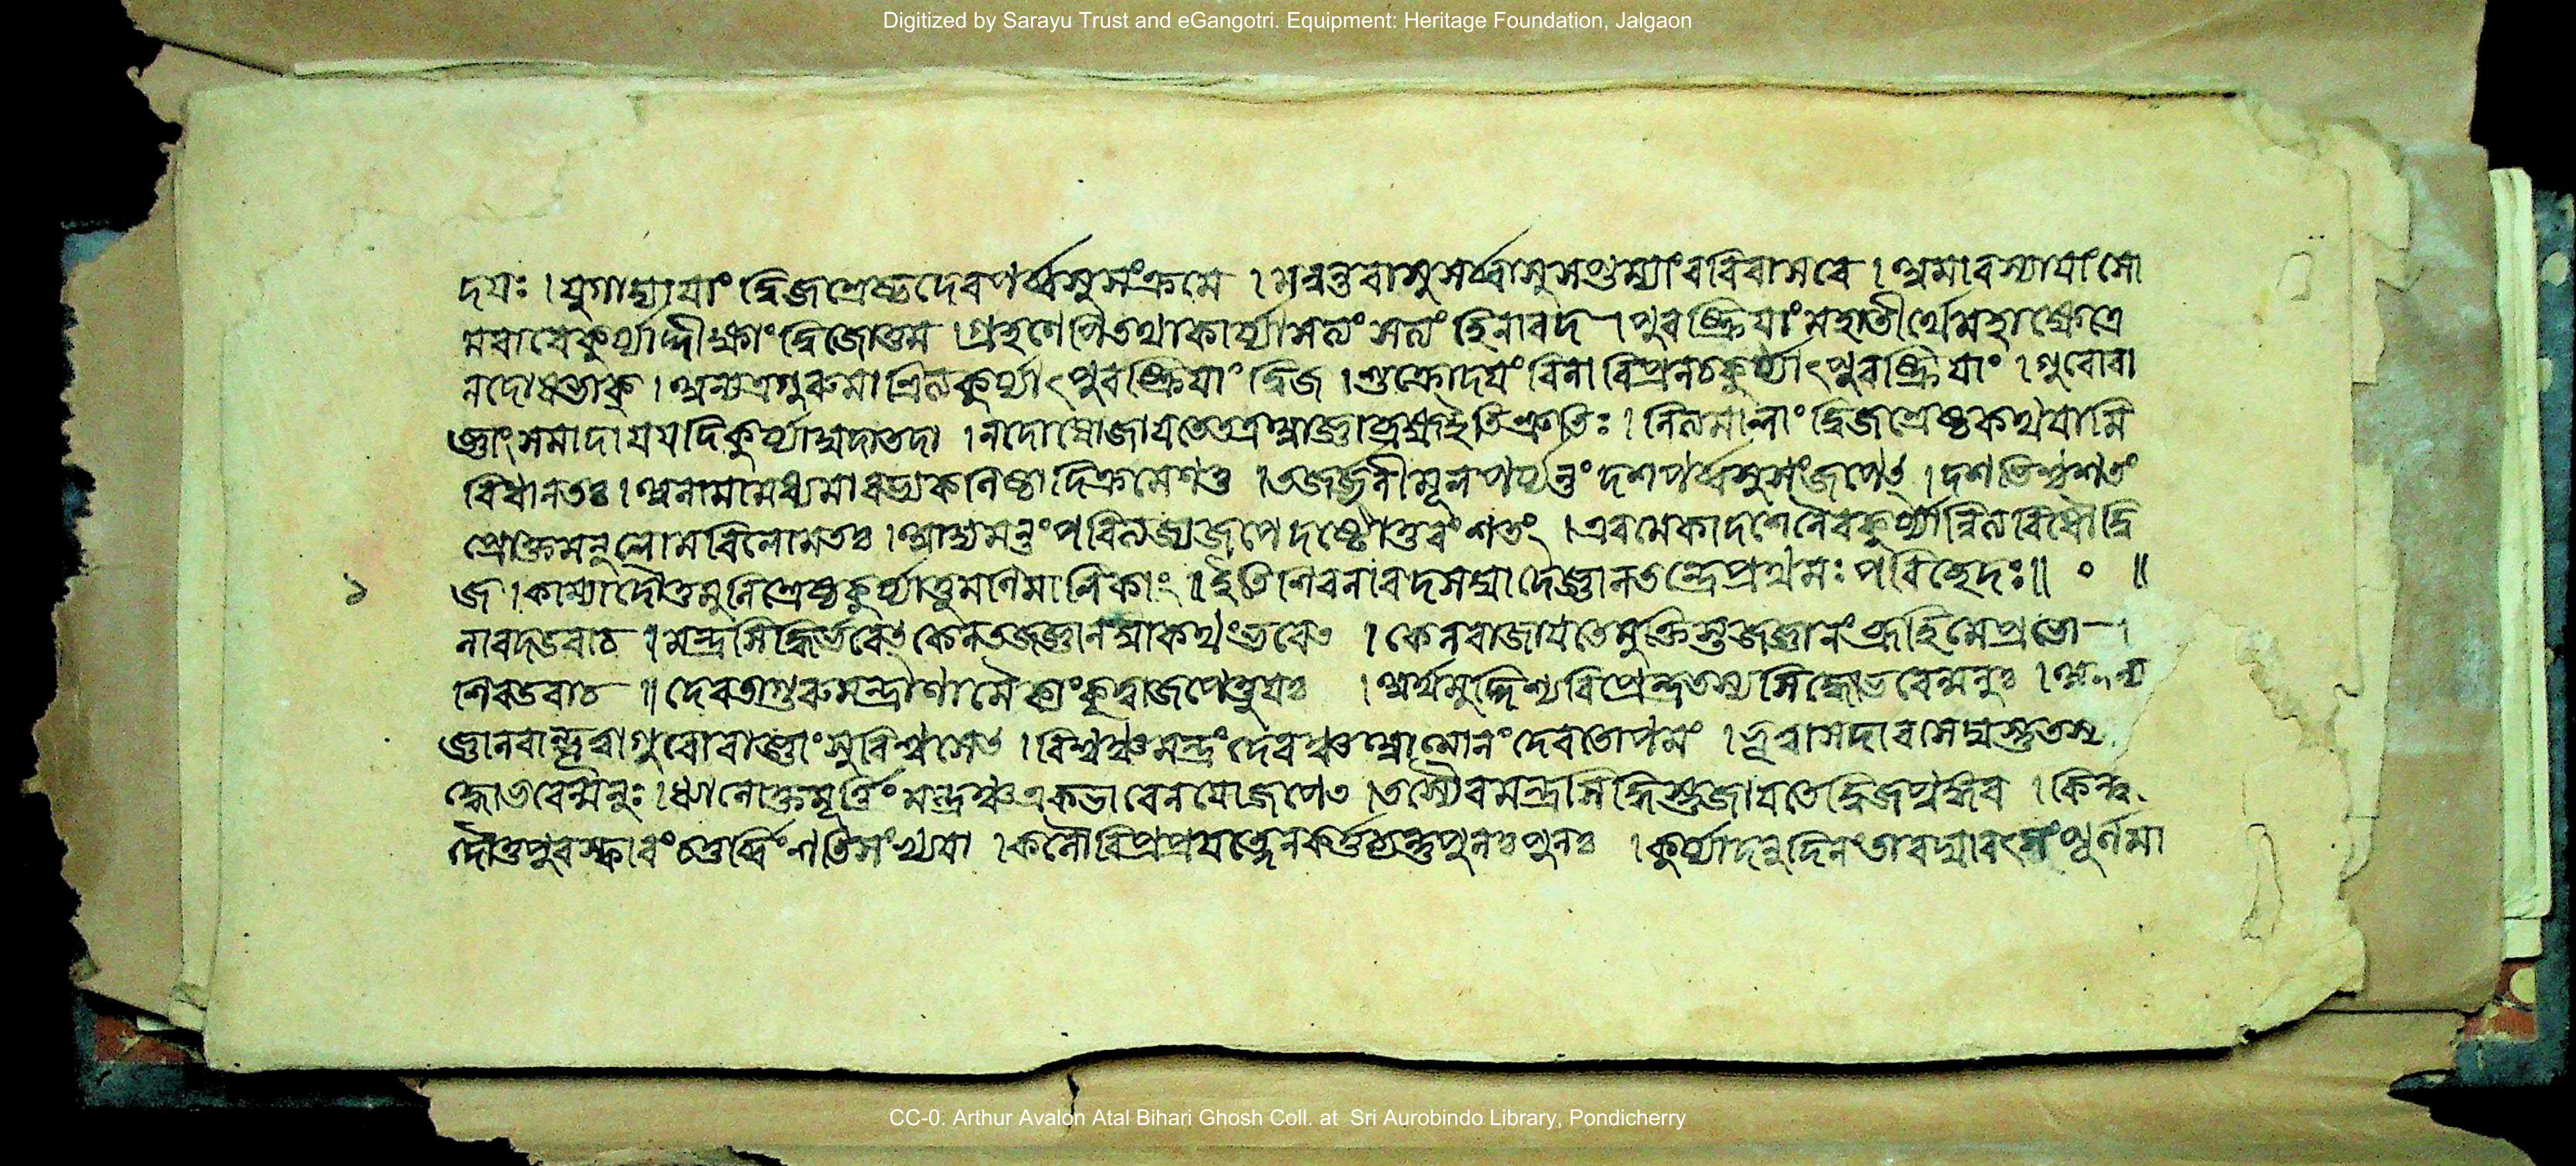 Digitized by Sarayu Trust and eGangotri. Equipment: Heritage Foundation, Jalgaon
দযঃ । যুগাদ্যাযাং দ্বিজশ্রেষ্ঠদেবপর্ব্বসুসংক্রমে । মন্বন্তরাসুসর্ব্বাসুসপ্তম্যাংরবিবাসরে । অমাবস্যাযাংসো
মবারেকুর্য্যাদ্দীক্ষাংদ্বিজোত্তম । গ্রহণে তথাকার্য্যা সত্যং সত্যং হিনারদ । পুরষ্ক্রিযাংমহাতীর্থেমহাক্ষেত্রে
নদোষভাক্ । অন্যত্রগুরুমা কুর্য্যাৎপুরষ্ক্রিযাং দ্বিজ । শুক্রোদযংবিনাবিপ্রনচকুর্য্যাৎপুরষ্ক্রিযাং । গুরোরা
জ্ঞাংসমাদাযযদিকুর্য্যাদ্যদাতদা । নদোষোজাযতেতত্র ইতিশ্রুতিঃ । দ্বিজশ্রেষ্ঠকথযামি
বিধানতঃ । অনামামধ্যমা কনিষ্ঠাদিক্রমেণতু । তর্জ্জনীমূলপর্য্যন্তংদশপর্ব্বসুসংজপেৎ । দশ শতং
প্রোক্তমনুলোমবিলোমতঃ । আদ্যমন্তংপরিত্যজ্যজপেদষ্টোত্তরংশতং । এবমেকাদশেনৈবকুর্য্যান্নিত্যবিধৌদ্বি
১ জ । কাম্যাদৌতুমুনিশ্রেষ্ঠকুর্য্যাত্তুমণিমালিকাং ॥ ইতিশিবনারদসম্বাদেজ্ঞানতন্ত্রেপ্রথমঃপরিচ্ছেদঃ ॥ ০ ॥
নারদউবাচ ॥ মন্ত্রসিদ্ধির্ভবেৎকেন কথংভবেৎ । কেনবাজাযতেমুক্তিস্তজ্জ্ঞানংব্রূহিমেপ্রভো ।
শিবউবাচ ॥ দেবতাগুরুমন্ত্রাণামৈক্যংকৃত্বাজপেত্তুযঃ । অর্থমুদ্দিশ্যবিপ্রেন্দ্রতস্যসিদ্ধোভবেন্মনুঃ ।
জ্ঞানবান্ভূত্বাগুরোরাজ্ঞাংসুবিশ্বসেৎ । বিশ্বঞ্চমন্ত্রং দেবঞ্চআত্মানংদেবতাপমং । ভূত্বাসদাবসদ্যস্তুতস্য
দ্ধোভবেন্মনুঃ । ধ্যানোক্তমূর্ত্তিং মন্ত্রঞ্চএকভাবেনযোজপেৎ । তস্যৈবমন্ত্রসিদ্ধিস্তুজাযতেদ্বিজ
দৌতুপুরস্কারং চতুর্ব্বিংশতিসংখ্যযা । কলৌবিপ্রপ্রযত্নেনকর্ত্তব্যন্তুপুনঃপুনঃ । কুর্য্যাদনুদিনংতাবদ্যাবৎ পূর্ণমা
CC-0. Arthur Avalon Atal Bihari Ghosh Coll. at Sri Aurobindo Library, Pondicherry